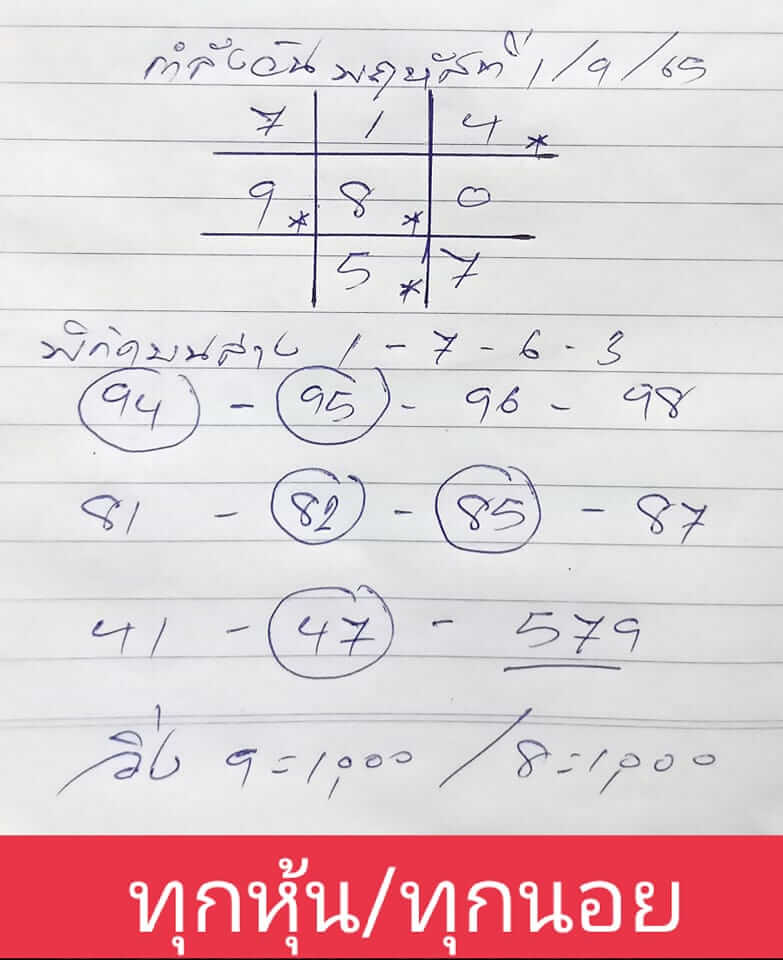 กำลังวันพฤหัสที่ 1/9/65
7 1 4*
9* 8* 0
5* 7
พิกัดบนล่าง 1-7-6-3
94 - 95 - 96 - 98
81 - 82 - 85 - 87
41 - 47 - 579
วิ่ง 9=1,000 / 8=1,000
ทุกหุ้น/ทุกนอย